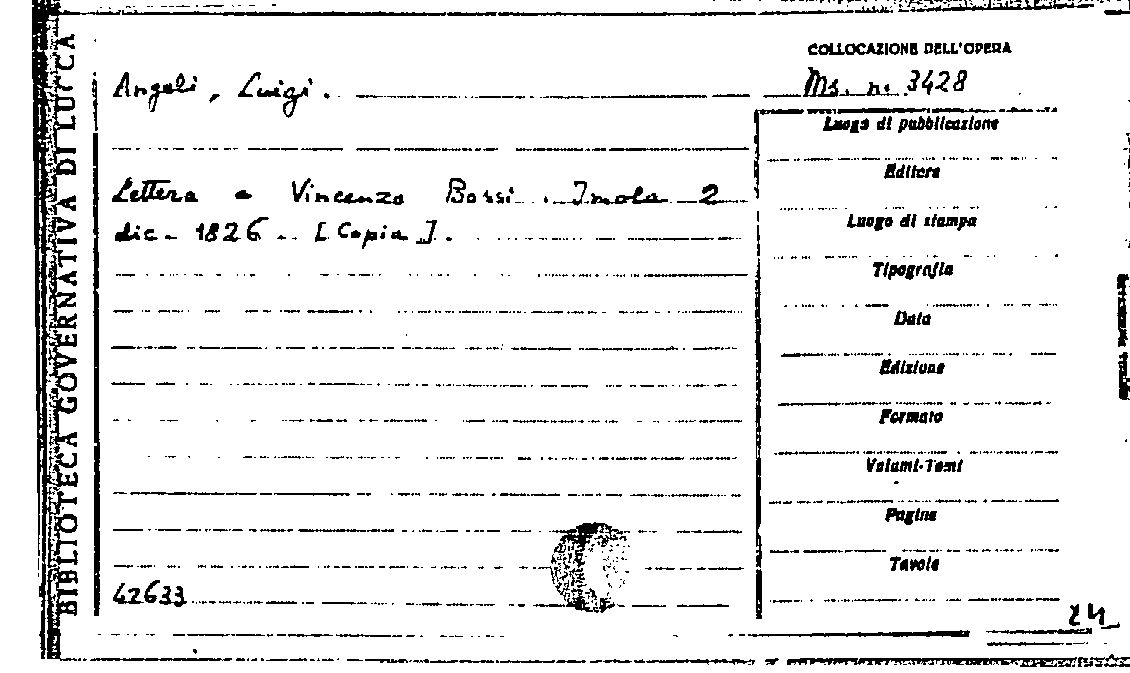 BIBLIOTECA GOVERNATIVA DI LUCCA
COLLOCAZIONE DELL'OPERA
Angeli, Luigi.
Ms. n. 3428
Luogo di pubblicazione
Lettera a Vincenzo Bossi. Imola 2
dic. 1826. [Copia].
Editore
Luogo di stampa
Tipografia
Data
Edizione
Formato
Volumi-Tomi
Pagine
Tavole
42633